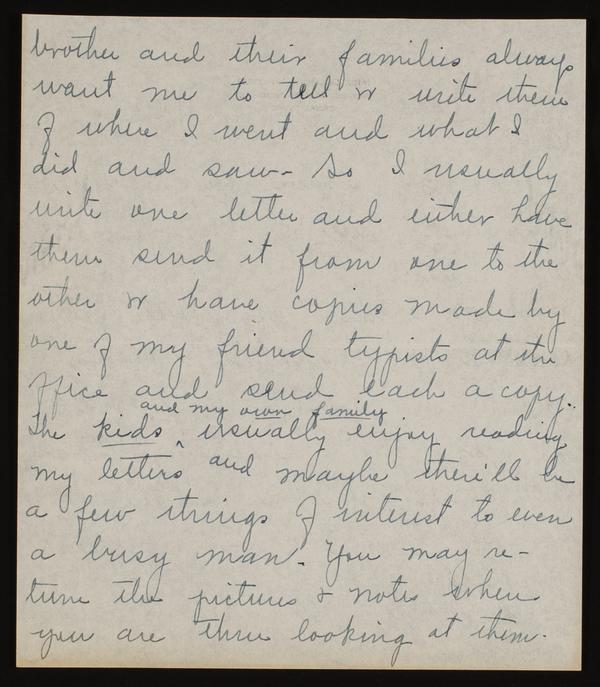 brother and their families always
want me to tell or write them
of where I went and what I
did and saw - So I usually
write one letter and either have
them send it from one to the
other or have copies made by
one of my friend typists at the
office and send each a copy.
and my own family
The kids ^ usually enjoy reading
my letters and maybe there'll be
a few things of interest to even
a busy man. You may re-
turn the pictures & notes when
you are thru looking at them.